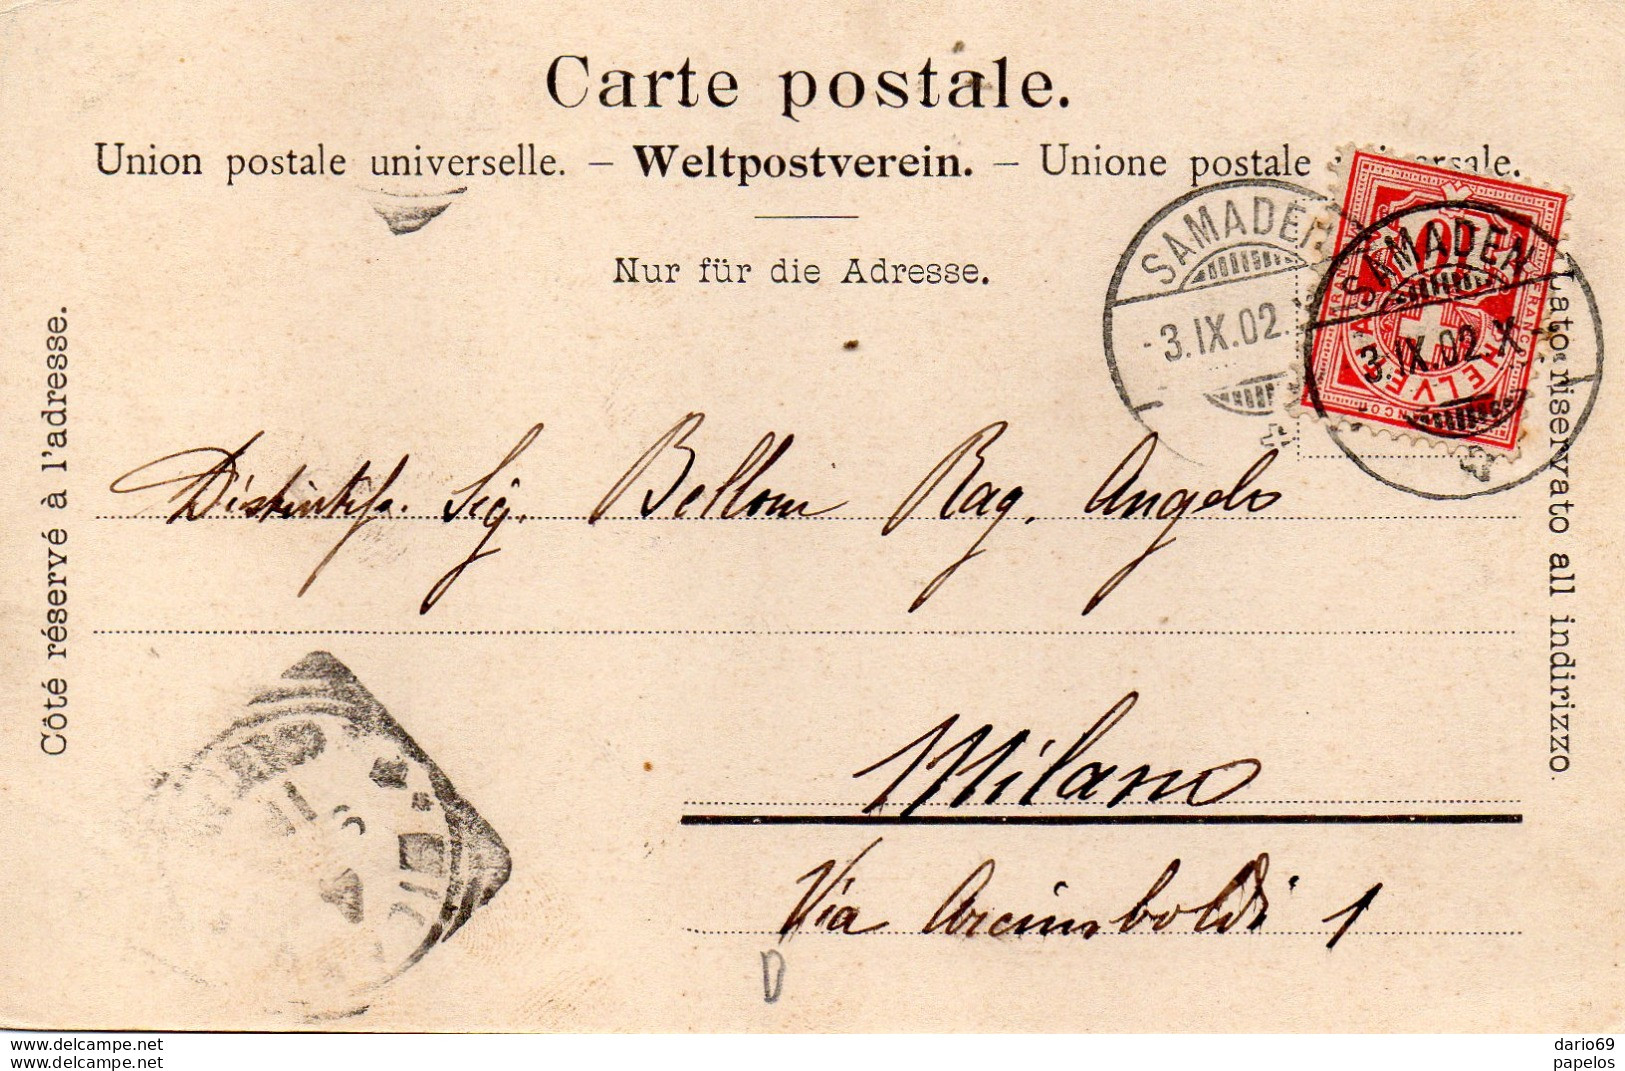 Carte postale.
Union postale universelle. – Weltpostverein. – Unione postale
Nur für die Adresse.
Côté réservé à l'adresse.
Lato riservato all indirizzo.
SAMADEN
3.IX.02.
SAMADEN
3.IX.02.X
10
HELVETIA
Sig. Belloni Rag. Angelo
Milano
Via Arcimboldi 1
D
www.delcampe.net
www.delcampe.net
dario69
papelos